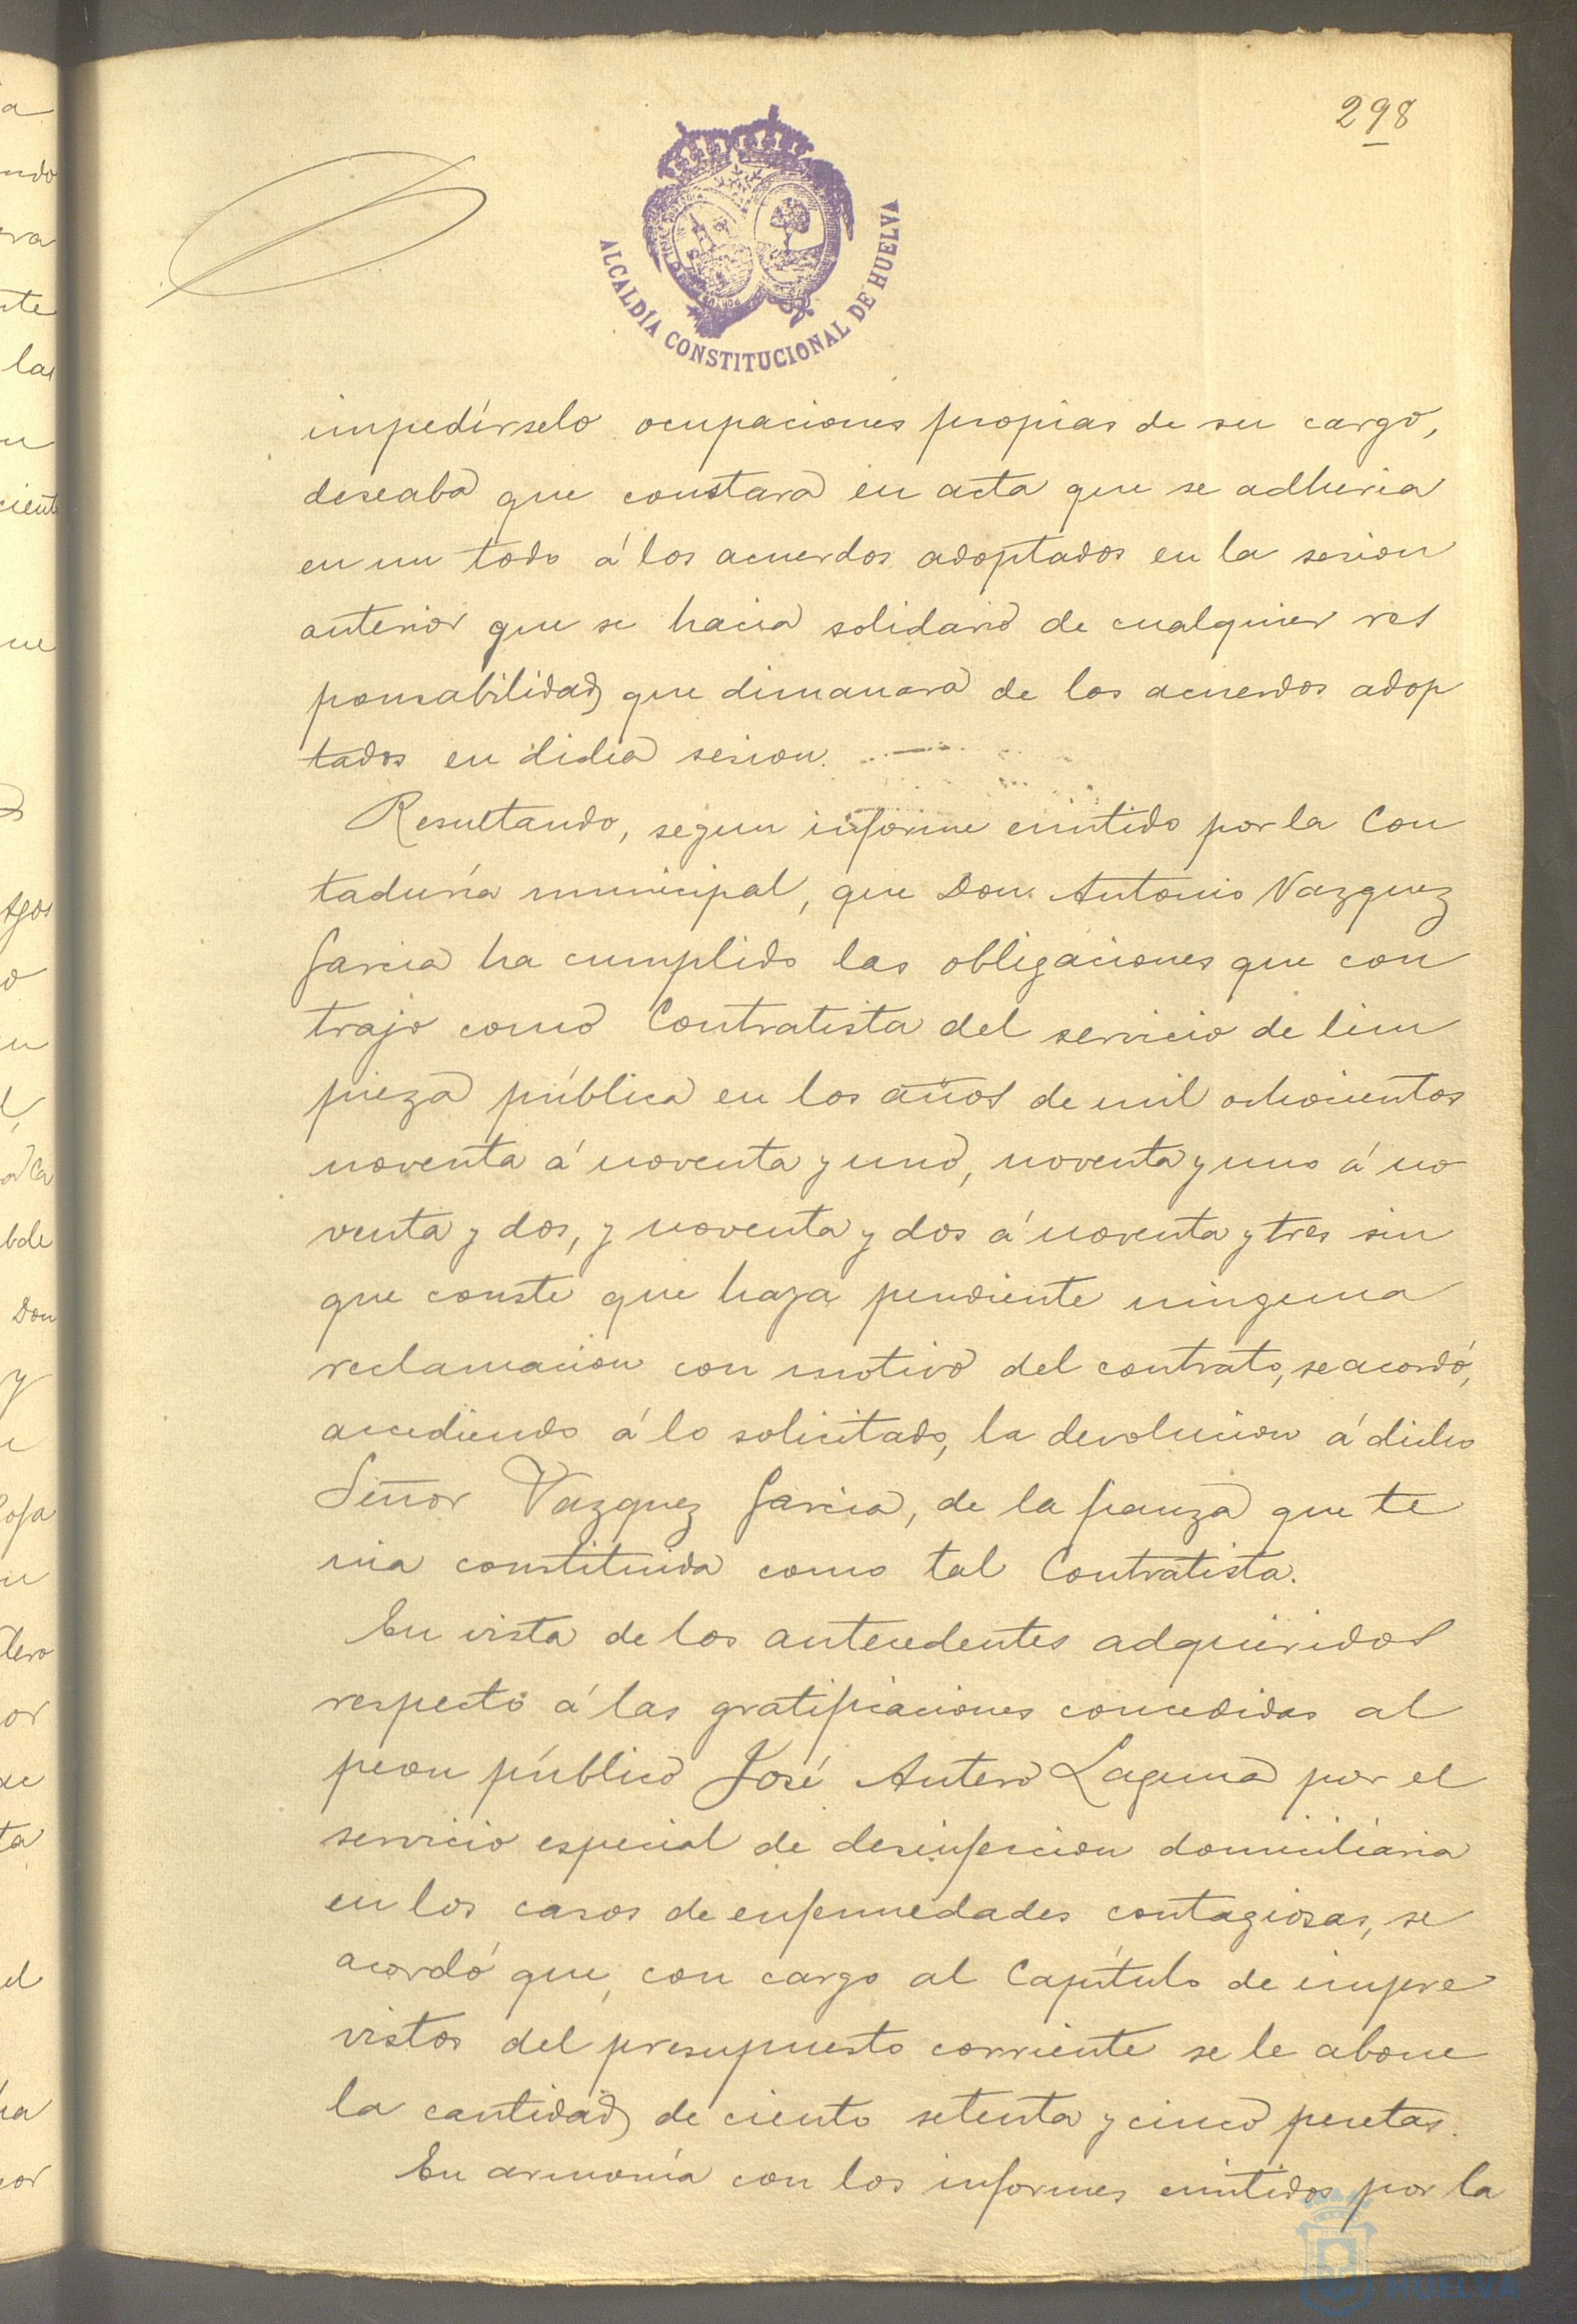 298
ALCALDÍA CONSTITUCIONAL DE HUELVA
impedírselo ocupaciones propias de su cargo,
deseaba que constara en acta que se adheria
en un todo á los acuerdos adoptados en la sesion
anterior que se hacia solidario de cualquier res
ponsabilidad que dimanara de los acuerdos adop
tados en dicha sesion.
Resultando, segun informe emitido por la Con
taduría municipal, que Don Antonio Vazquez
Garcia ha cumplido las obligaciones que con
trajo como Contratista del servicio de lim
pieza pública en los años de mil ochocientos
noventa á noventa y uno, noventa y uno á no
venta y dos, y noventa y dos á noventa y tres sin
que conste que haya pendiente ninguna
reclamacion con motivo del contrato, se acordó,
accediendo á lo solicitado, la devolucion á dicho
Señor Vazquez Garcia, de la fianza que te
nia constituida como tal Contratista.
En vista de los antecedentes adquiridos
respecto á las gratificaciones concedidas al
peon público José Antero Laguna por el
servicio especial de desinfeccion domiciliaria
en los casos de enfermedades contagiosas, se
acordó que, con cargo al Capítulo de impre
vistos del presupuesto corriente se le abone
la cantidad de ciento setenta y cinco pesetas.
En armonía con los informes emitidos por la
HUELVA